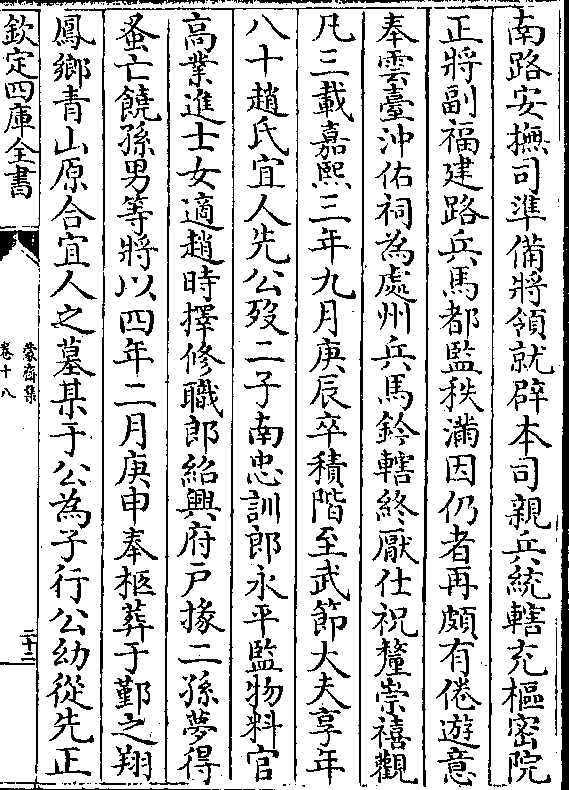 南路安撫司準備將領就辟本司親兵統轄充樞密院
正將副福建路兵馬都監秩滿因仍者再頗有倦遊意
奉雲臺沖佑祠為處州兵馬鈐轄終厭仕祝釐崇禧觀
凡三載嘉熙三年九月庚辰卒積階至武節大夫享年
八十趙氏宜人先公歿二子南忠訓郎永平監物料官
高業進士女適趙時擇修職郎紹興府戶掾二孫夢得
蚤亡饒孫男等將以四年二月庚申奉柩葬于鄞之翔
鳳鄉青山原合宜人之墓某于公為子行公幼從先正
欽定四庫全書
蒙齋集
卷十八
二十三